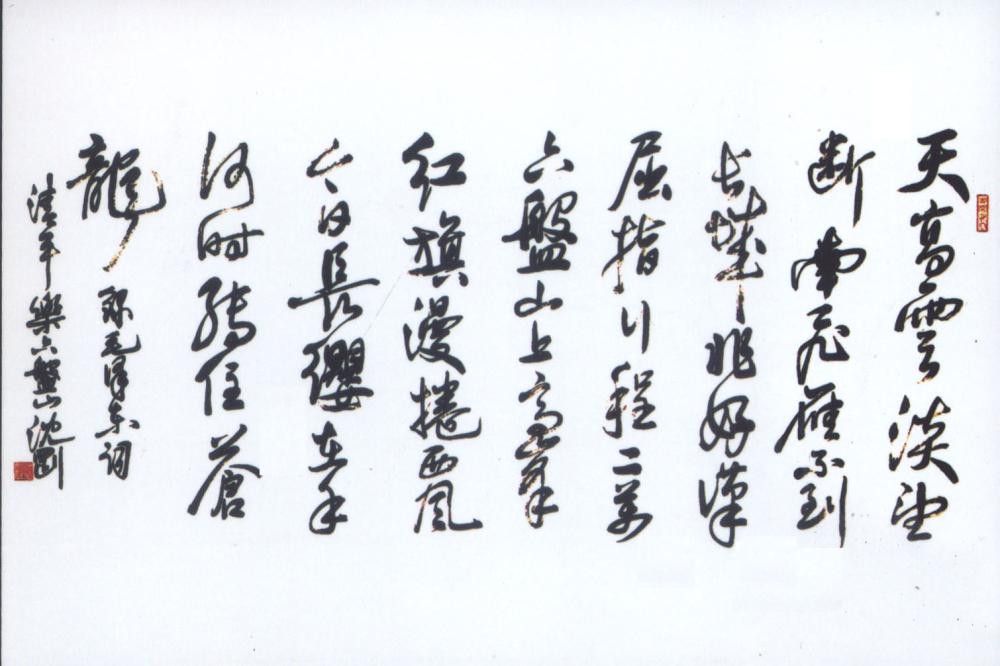 天高雲淡望
断南飞雁不到
长城非好漢
屈指行程二萬
六盤山上高峯
红旗漫捲西風
今日長纓在手
何时缚住蒼
龍 毛泽东词
清平樂六盤山沈剛